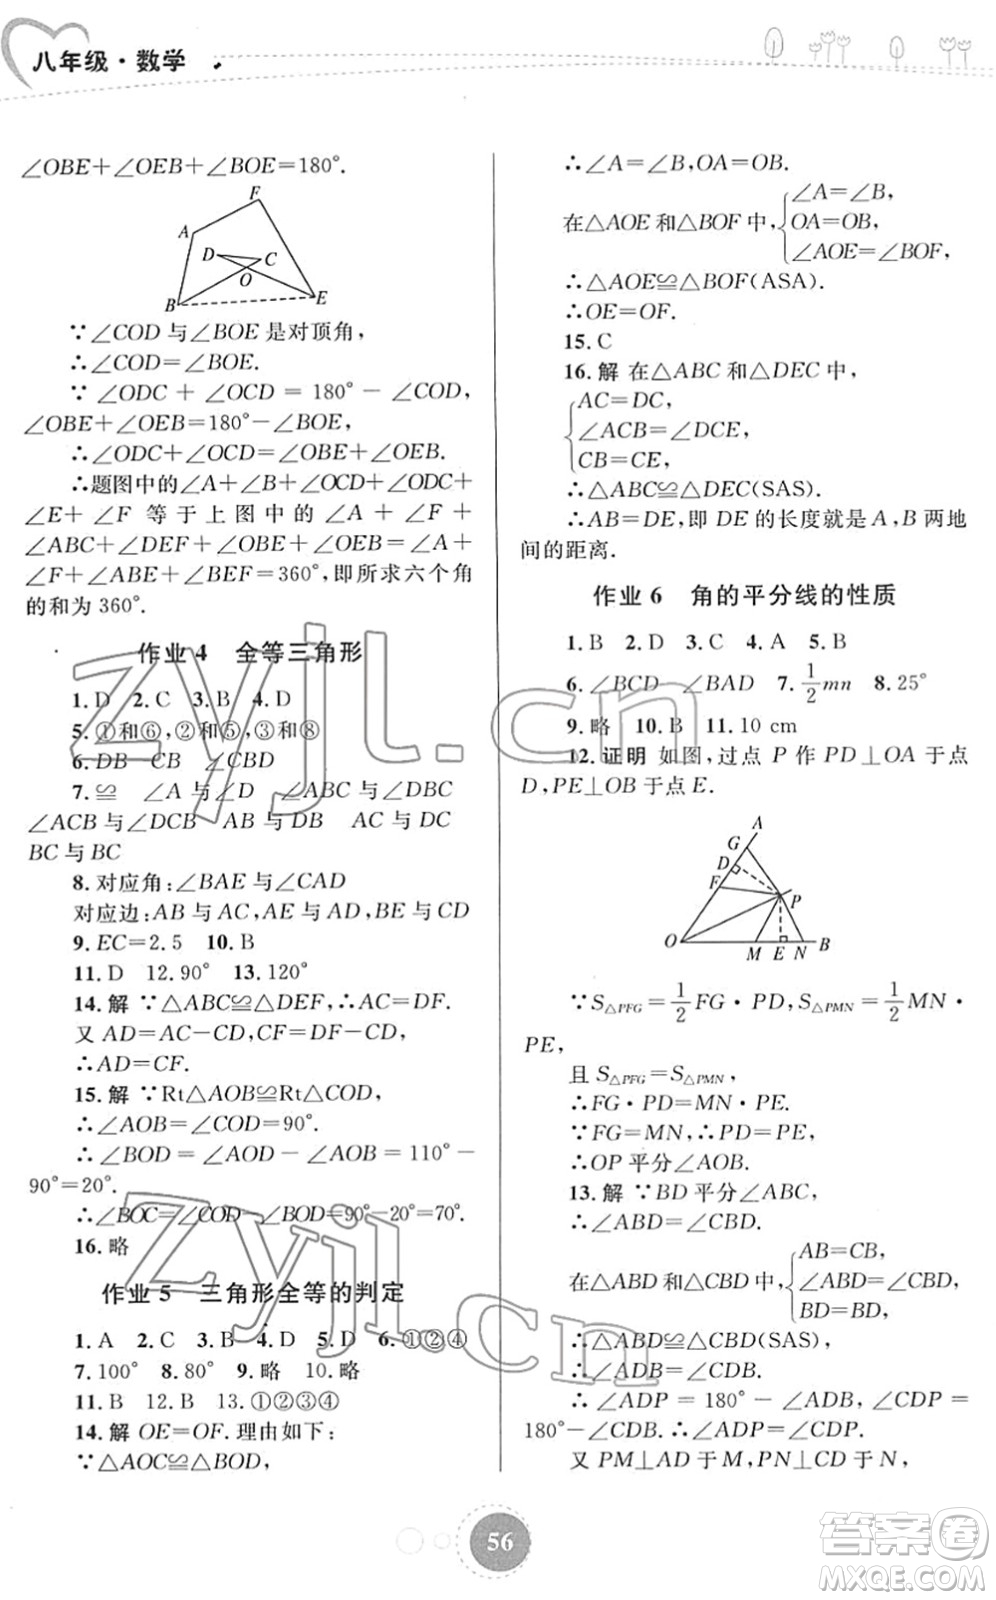 八年级·数学
∠OBE+∠OEB+∠BOE=180°.
F
A
D
C
O
B
E
∵∠COD 与∠BOE 是对顶角,
∴∠COD=∠BOE.
∵ ∠ODC + ∠OCD = 180° − ∠COD,
∠OBE+∠OEB=180°−∠BOE,
∴∠ODC+∠OCD=∠OBE+∠OEB.
∴题图中的∠A+∠B+∠OCD+∠ODC+
∠E+∠F 等于上图中的∠A+∠F+
∠ABC+∠DEF+∠OBE+∠OEB=∠A+
∠F+∠ABE+∠BEF=360°,即所求六个角
的和为 360°.
作业 4 全等三角形
1.D 2.C 3.B 4.D
5.①和⑥,②和⑤,③和⑧
6.DB CB ∠CBD
7.≌ ∠A 与∠D ∠ABC 与∠DBC
∠ACB 与∠DCB AB 与 DB AC 与 DC
BC 与 BC
8.对应角:∠BAE 与∠CAD
对应边:AB 与 AC,AE 与 AD,BE 与 CD
9.EC=2.5 10.B
11.D 12.90° 13.120°
14.解 ∵△ABC≌△DEF,∴AC=DF.
又 AD=AC−CD,CF=DF−CD,
∴AD=CF.
15.解 ∵Rt△AOB≌Rt△COD,
∴∠AOB=∠COD=90°.
∴∠BOD=∠AOD−∠AOB=110°−
90°=20°.
∴∠BOC=∠COD−∠BOD=90°−20°=70°.
16.略
作业 5 三角形全等的判定
1.A 2.C 3.B 4.D 5.D 6.①②④
7.100° 8.80° 9.略 10.略
11.B 12.B 13.①②③④
14.解 OE=OF.理由如下:
∵△AOC≌△BOD,
∴∠A=∠B,OA=OB.
在△AOE 和△BOF 中,
∠A=∠B,
OA=OB,
∠AOE=∠BOF,
∴△AOE≌△BOF(ASA).
∴OE=OF.
15.C
16.解 在△ABC 和△DEC 中,
AC=DC,
∠ACB=∠DCE,
CB=CE,
∴△ABC≌△DEC(SAS).
∴AB=DE,即 DE 的长度就是 A,B 两地
间的距离.
作业 6 角的平分线的性质
1.B 2.D 3.C 4.A 5.B
6.∠BCD ∠BAD 7.1/2 mn 8.25°
9.略 10.B 11.10 cm
12.证明 如图,过点 P 作 PD⊥OA 于点
D,PE⊥OB 于点 E.
A
G
D
F
P
O
M
E
N
B
∵S△PFG=1/2 FG·PD,S△PMN=1/2 MN·
PE,
且 S△PFG=S△PMN,
∴FG·PD=MN·PE.
∵FG=MN,∴PD=PE,
∴OP 平分∠AOB.
13.解 ∵BD 平分∠ABC,
∴∠ABD=∠CBD.
在△ABD 和△CBD 中,
AB=CB,
∠ABD=∠CBD,
BD=BD,
∴△ABD≌△CBD(SAS).
∴∠ADB=∠CDB.
∴∠ADP=180°−∠ADB,∠CDP=
180°−∠CDB.∴∠ADP=∠CDP.
又 PM⊥AD 于点 M,PN⊥CD 于点 N,
56
zyjl.cn
zyjl.cn
答案卷
MXQE.COM